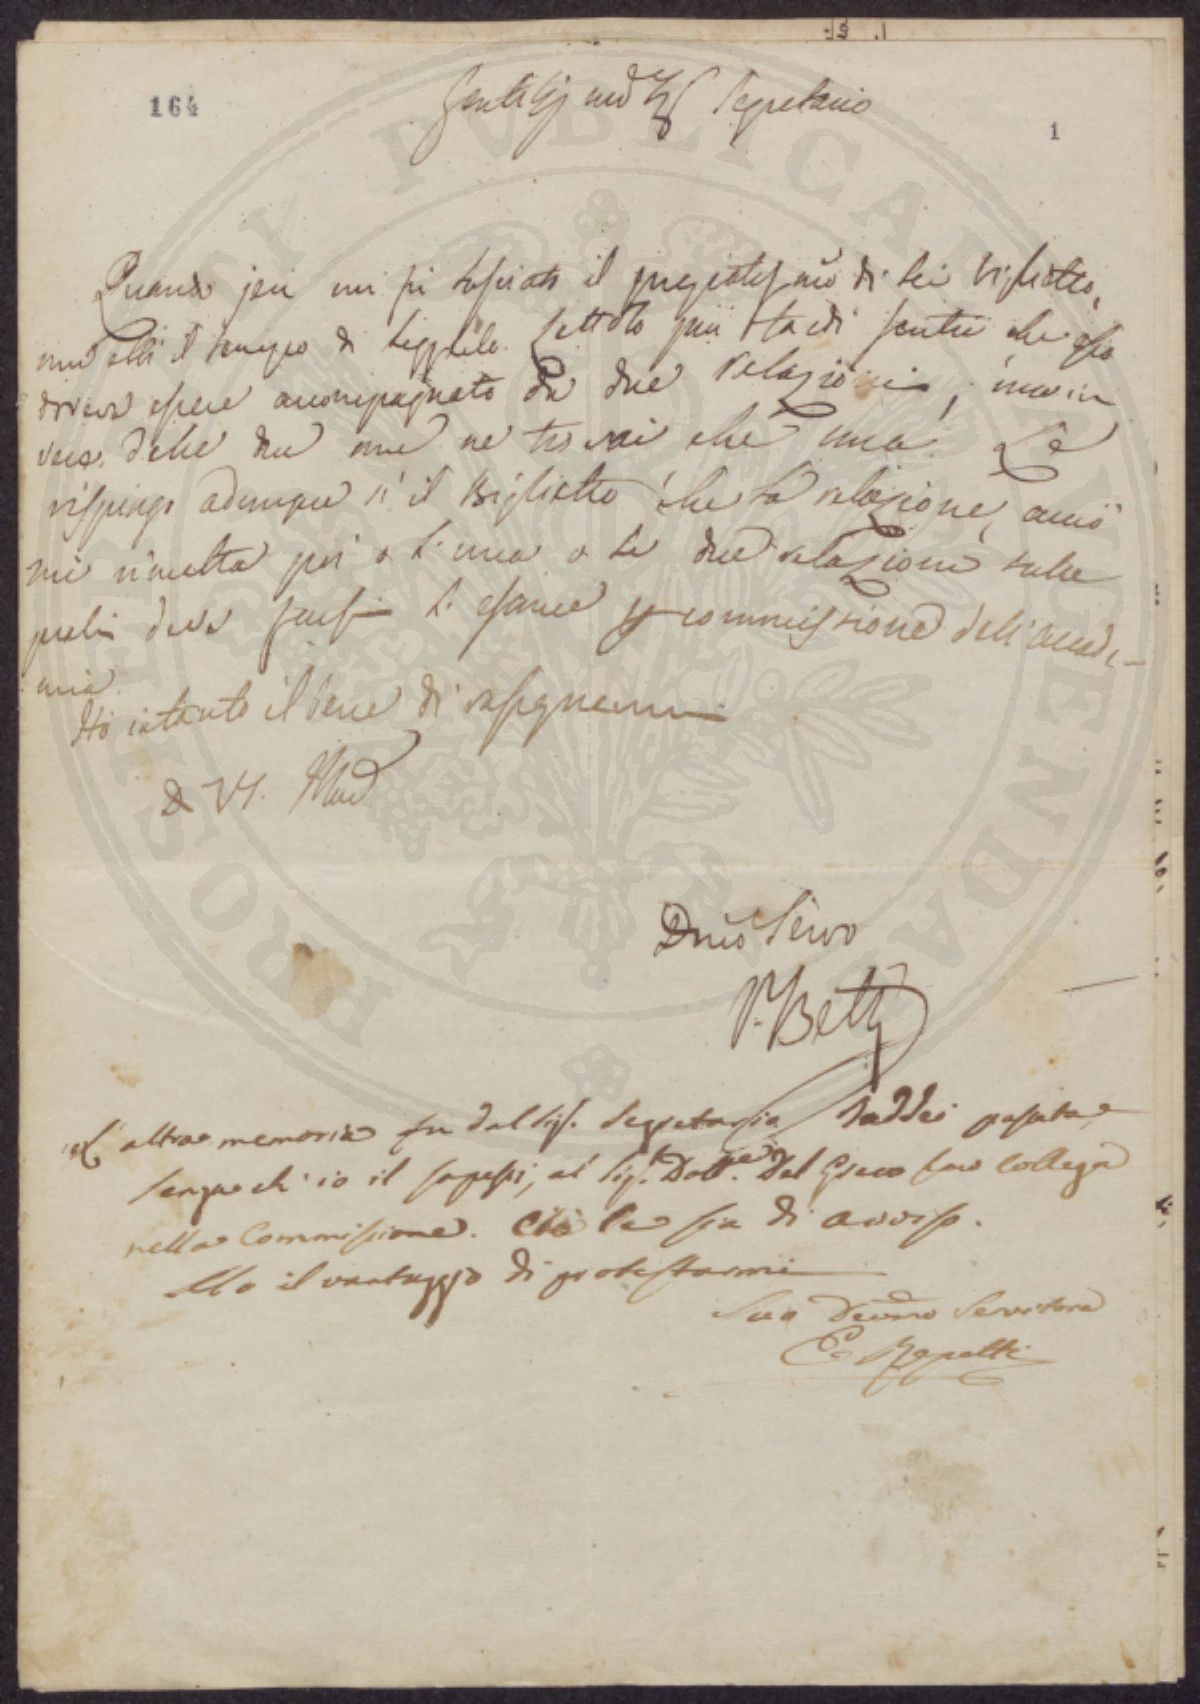 164
1
Segretario
Quando jeri mi fu lasciato il pregiatissmo di lei Biglietto,
non ebbi il tempo di leggerlo. Lettolo più tardi sentii che esso
doveva essere accompagnato da due relazioni, ma in
vece delle due non ne trovai che una. Le
respingo adunque sì il Biglietto che la relazione, acciò
mi rimetta poi o l'una o le due relazioni sulle
quali deve farsi l'esame p commissione dell'Accade-
mia.
Ho intanto il bene di rassegnarmi
D VS.
Dmo Servo
P. Betti
L'altra memoria fu dal Sig. Segretario Taddei passata,
senza ch'io il sapessi, al Sig. Dott.re Del Greco suo Collega
nella Commissione. Ciò le sia di avviso.
Ho il vantaggio di protestarmi
Suo Devmo Servitore
E Repetti
HOSPITES PUBLICAE AVGENDAE